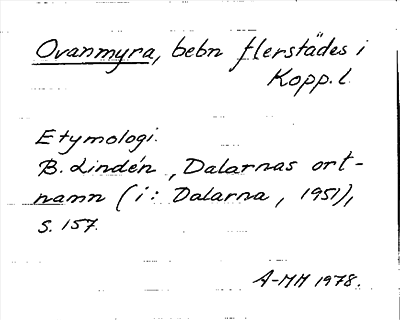 Ovanmyra, bebn flerstädes i
Kopp. l.
Etymologi.
B. Lindén, Dalarnas ort-
namn (i: Dalarna, 1951),
s. 157.
A-MH 1978.